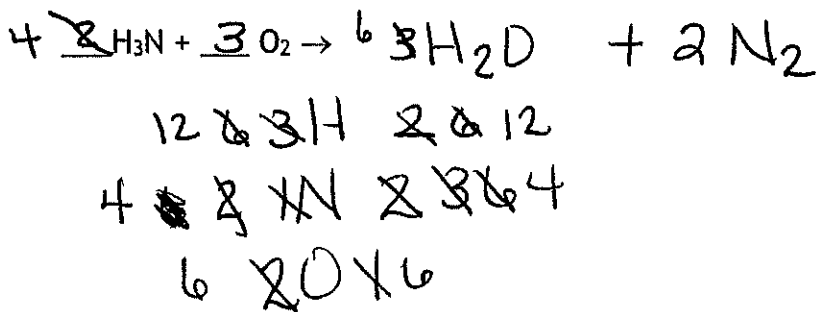 4 2 H₃N + 3 O₂ → 6 3 H₂O + 2 N₂
12 6 3 H 2 6 12
4 2 1 N 2 3 6 4
6 2 O 1 6